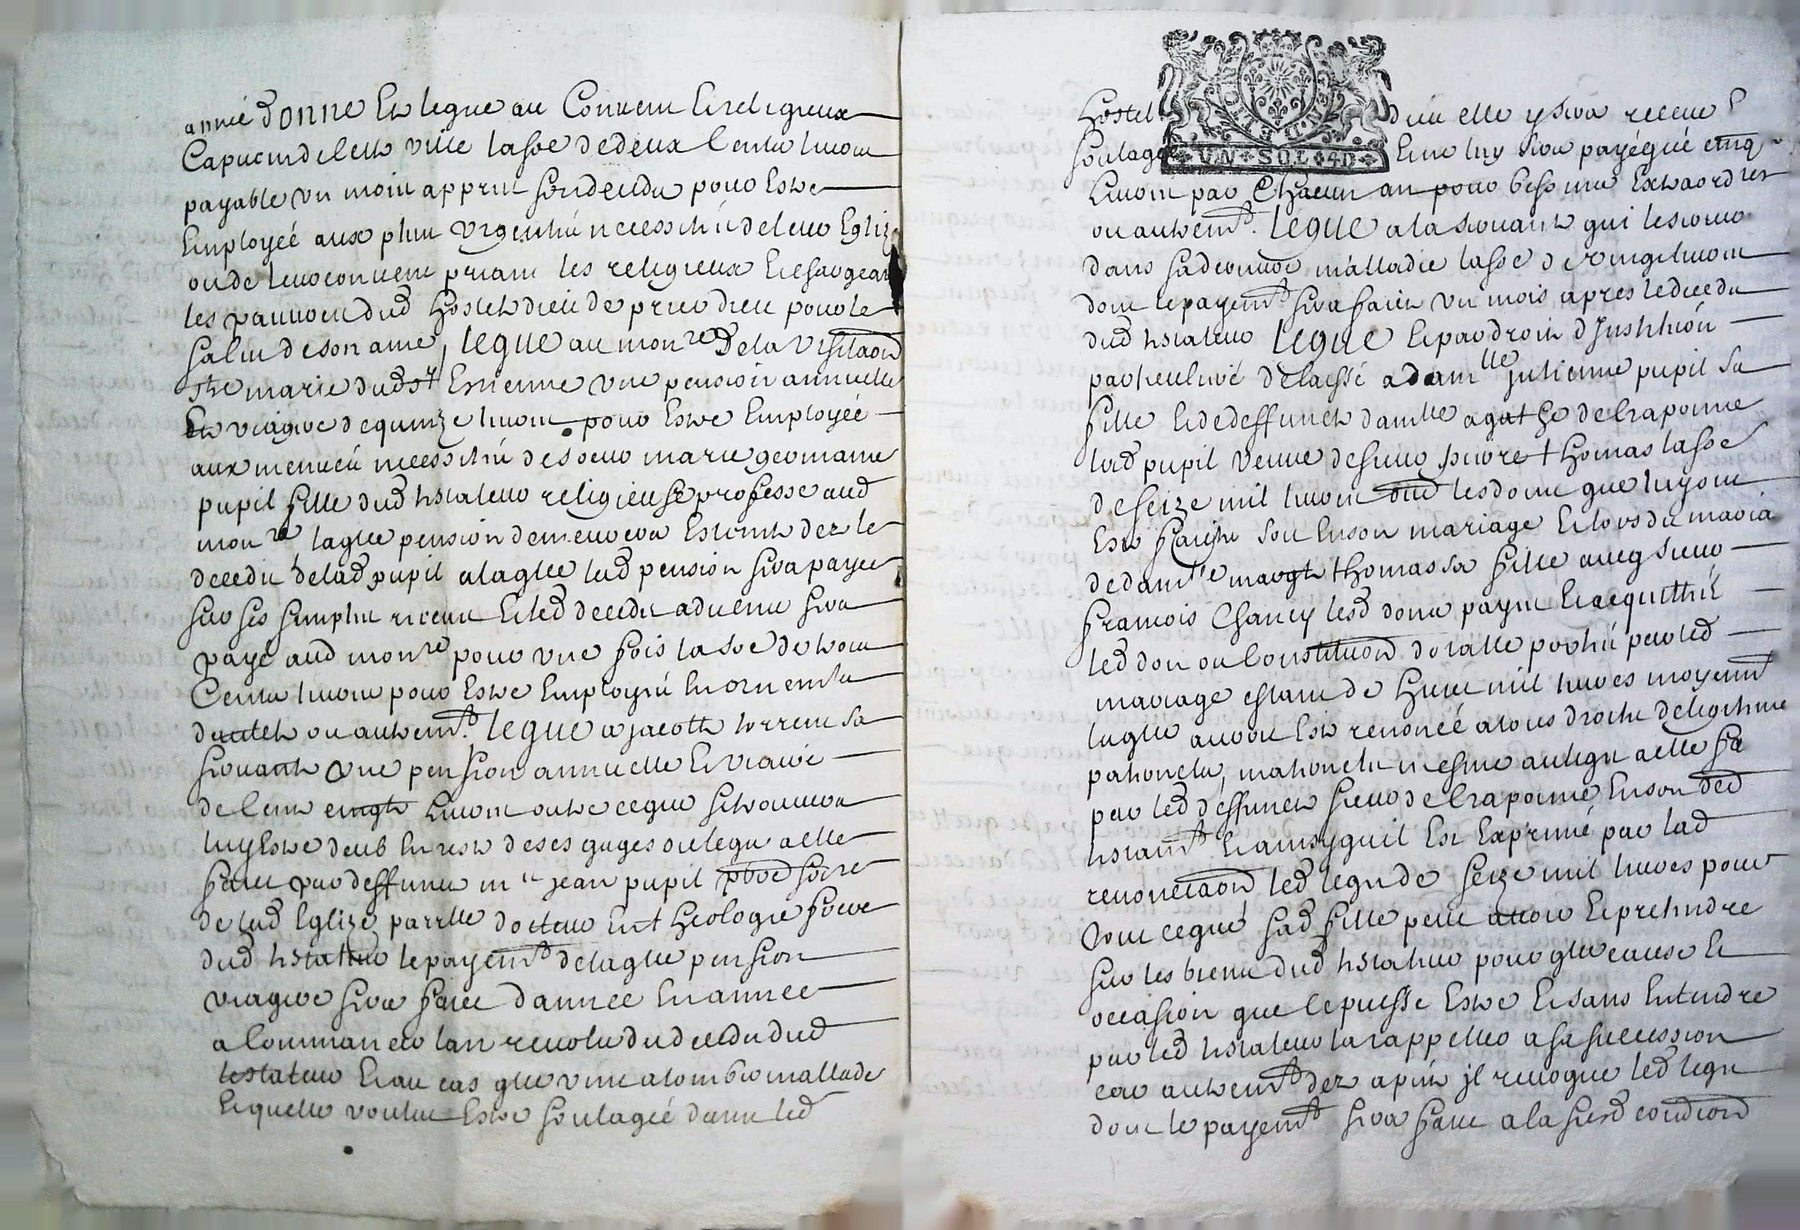 année donne Et legue au Convent Et religieux
Capucin de lad ville lasoe de deux Centz livres
payable un mois apprez son decedz pour Estre
Employéé aux plus urgentes necessités de leur Eglize
ou de leur convent priant les religieux Et chargeant
les pauvres dud hostel dieu de prier dieu pour le
salut de son ame, legue au monre de la visitaon
ste marie dud st Estienne une pension annuelle
Et viagere de quinze livres pour Estre Employéé
aux menues necessités de soeur marie germaine
pupil fille dud testateur religieuse professe aud
monre laqlle pension demeurera Estainte dez le
decedz de lad pupil a laqlle lad pension sera payee
sur ses simples receus Et led decedz advenu sera
payé aud monre pour une fois la soe de trois
Centz livres pour Estre Employés En ornemts
dautel ou autremt. legue a jacotte torrent sa
servante une pension annuelle Et viagere
de Cent vingt livres outre ce que se trouvera
luy Estre deub En reste de ses gages ou legat a elle
fait par deffunct mre jean pupil pbre socre
de lad Eglize parrlle docteur En theologie frere
dud testateur le payemt de laqlle pension
viagere sera faict d'annee En annee
a Commancer lan revolu du decedz dud
testateur Et au cas qlle vint a tomber mallade
Et quelle voulut Estre soulagéé dans led
hostel dieu elle y sera receue
soulagéé Et ne luy sera payé que cinq
livres par Chacun an pour besoins Extraordres
ou autremt. legue a la servante qui le servira
dans sa derniere malladie lasoe de vingt livres
dont le payemt sera faict un mois apres le decedz
dud testateur legue Et par droit d'Institution
particuliere delaisse a damlle julienne pupil sa
fille Et de deffuncte damlle agathe de Craponne
lad pupil veuve de sieur pierre thomas lasoe
de seize mil livres oud les dons que luy ont
Esté faictz soit En son mariage Et lors du maria
de damlle margte thomas sa fille avec sieur
françois Chaney lesd dons payés Et acquittés
led don ou Constituon dotalle portés par led
mariage estant de huit mil livres moyennt
laqlle auroit Esté renoncé a tous droitz de legitime
paternelz, maternelz mesme au legat a elle fa
par led deffunct sieur de Craponne En son ded
testamt Et ainsy quil Est Exprimé par lad
renonciaon led legat de seize mil livres pour
tout ce que sad fille peut avoir Et pretendre
sur les biens dud testateur pour qlle cause Et
occasion que ce puisse Estre Et sans Entendre
par led testateur la rappeller a sa succession
car autremt dez a pnt jl revoque led legat
dont le payemt sera faict a la susd condition
VN SOL 4D